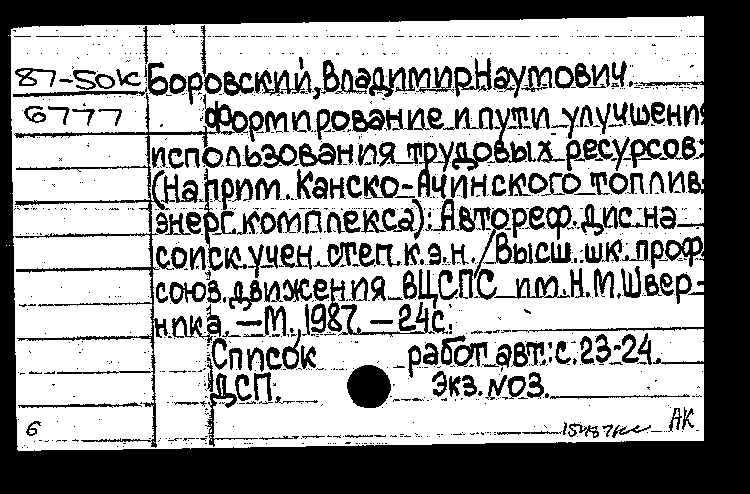 87-50к Боровский, Владимир Наумович.
6777 Формирование и пути улучшения
использования трудовых ресурсов:
(На прим. Канско-Ачинского топлив.
энерг. комплекса): Автореф. дис. на
соиск. учен. степ. к.э.н. / Высш. шк. проф.
союз. движения ВЦСПС им. Н.М. Швер-
ника. — М., 1987. — 24с.
Список работ авт.: с. 23-24.
ДСП. Экз. №03.
6 АК